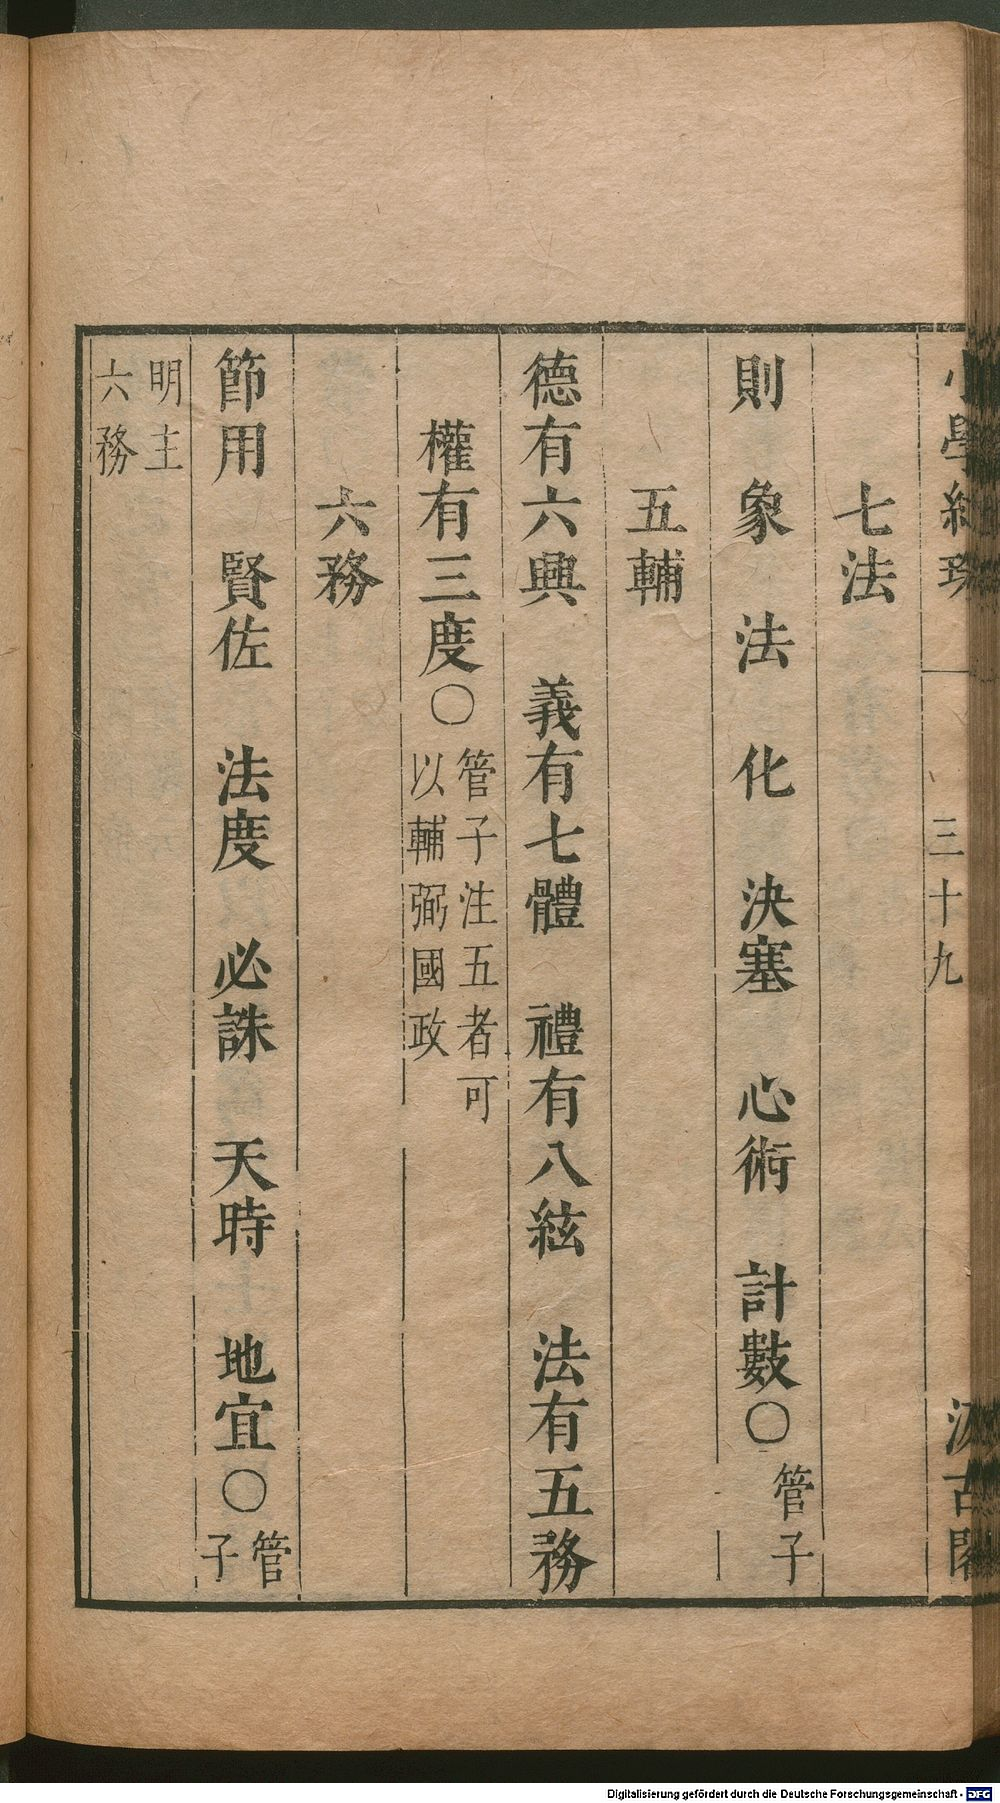 小學紺珠 三十九 汲古閣
七法
則 象 法 化 決塞 心術 計數○管子
五輔
德有六興 義有七體 禮有八絃 法有五務
權有三度○管子注五者可
以輔弼國政
六務
節用 賢佐 法度 必誅 天時 地宜○管
子
明主
六務
Digitalisierung gefördert durch die Deutsche Forschungsgemeinschaft - DFG